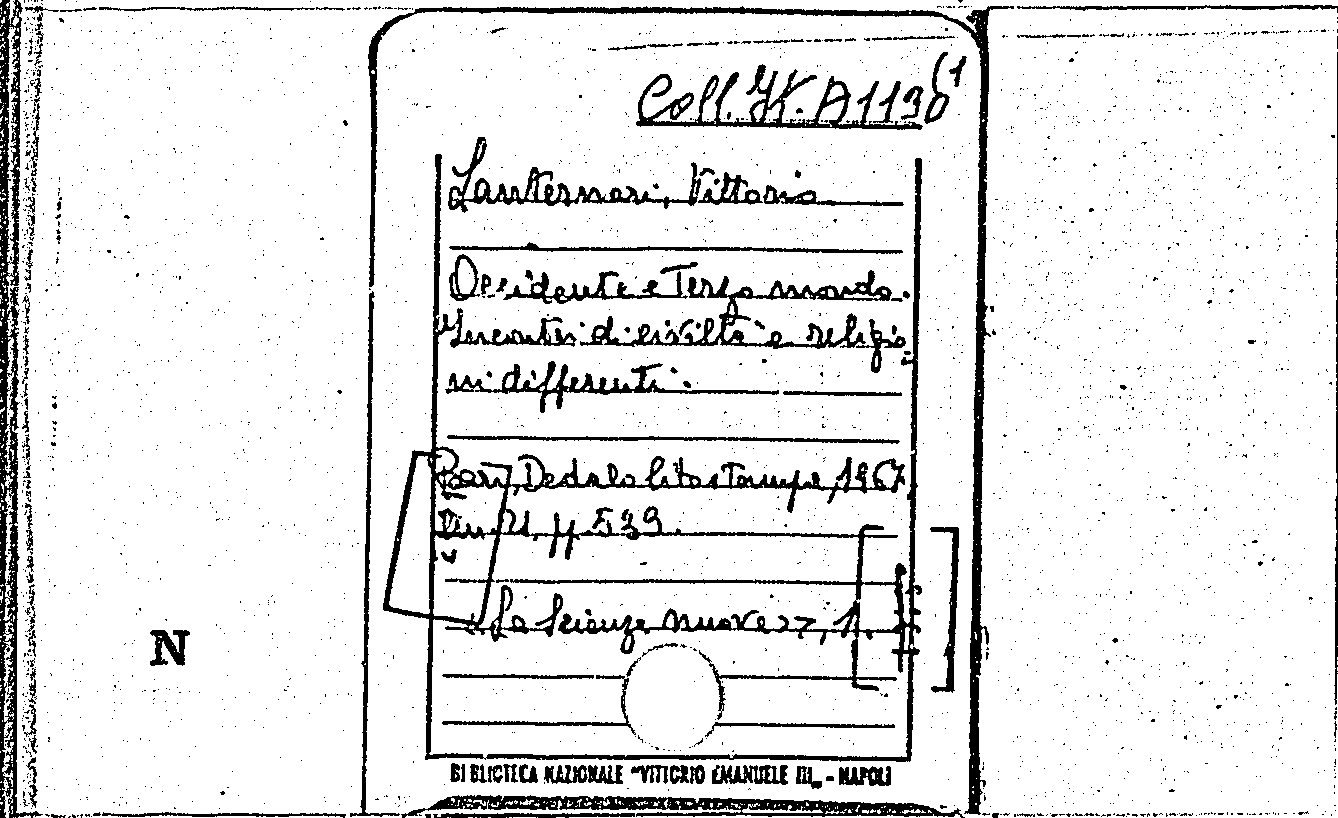 Coll. YK. A 1190 (1
Lanternari, Vittorio
Occidente e Terzo mondo.
Incontri di civiltà e religio=
ni differenti.
Bari, Dedalo litostampa, 1967
21. pp. 539.
«La Scienza nuova», 1.
N
BIBLIOTECA NAZIONALE "VITTORIO EMANUELE III„ - NAPOLI